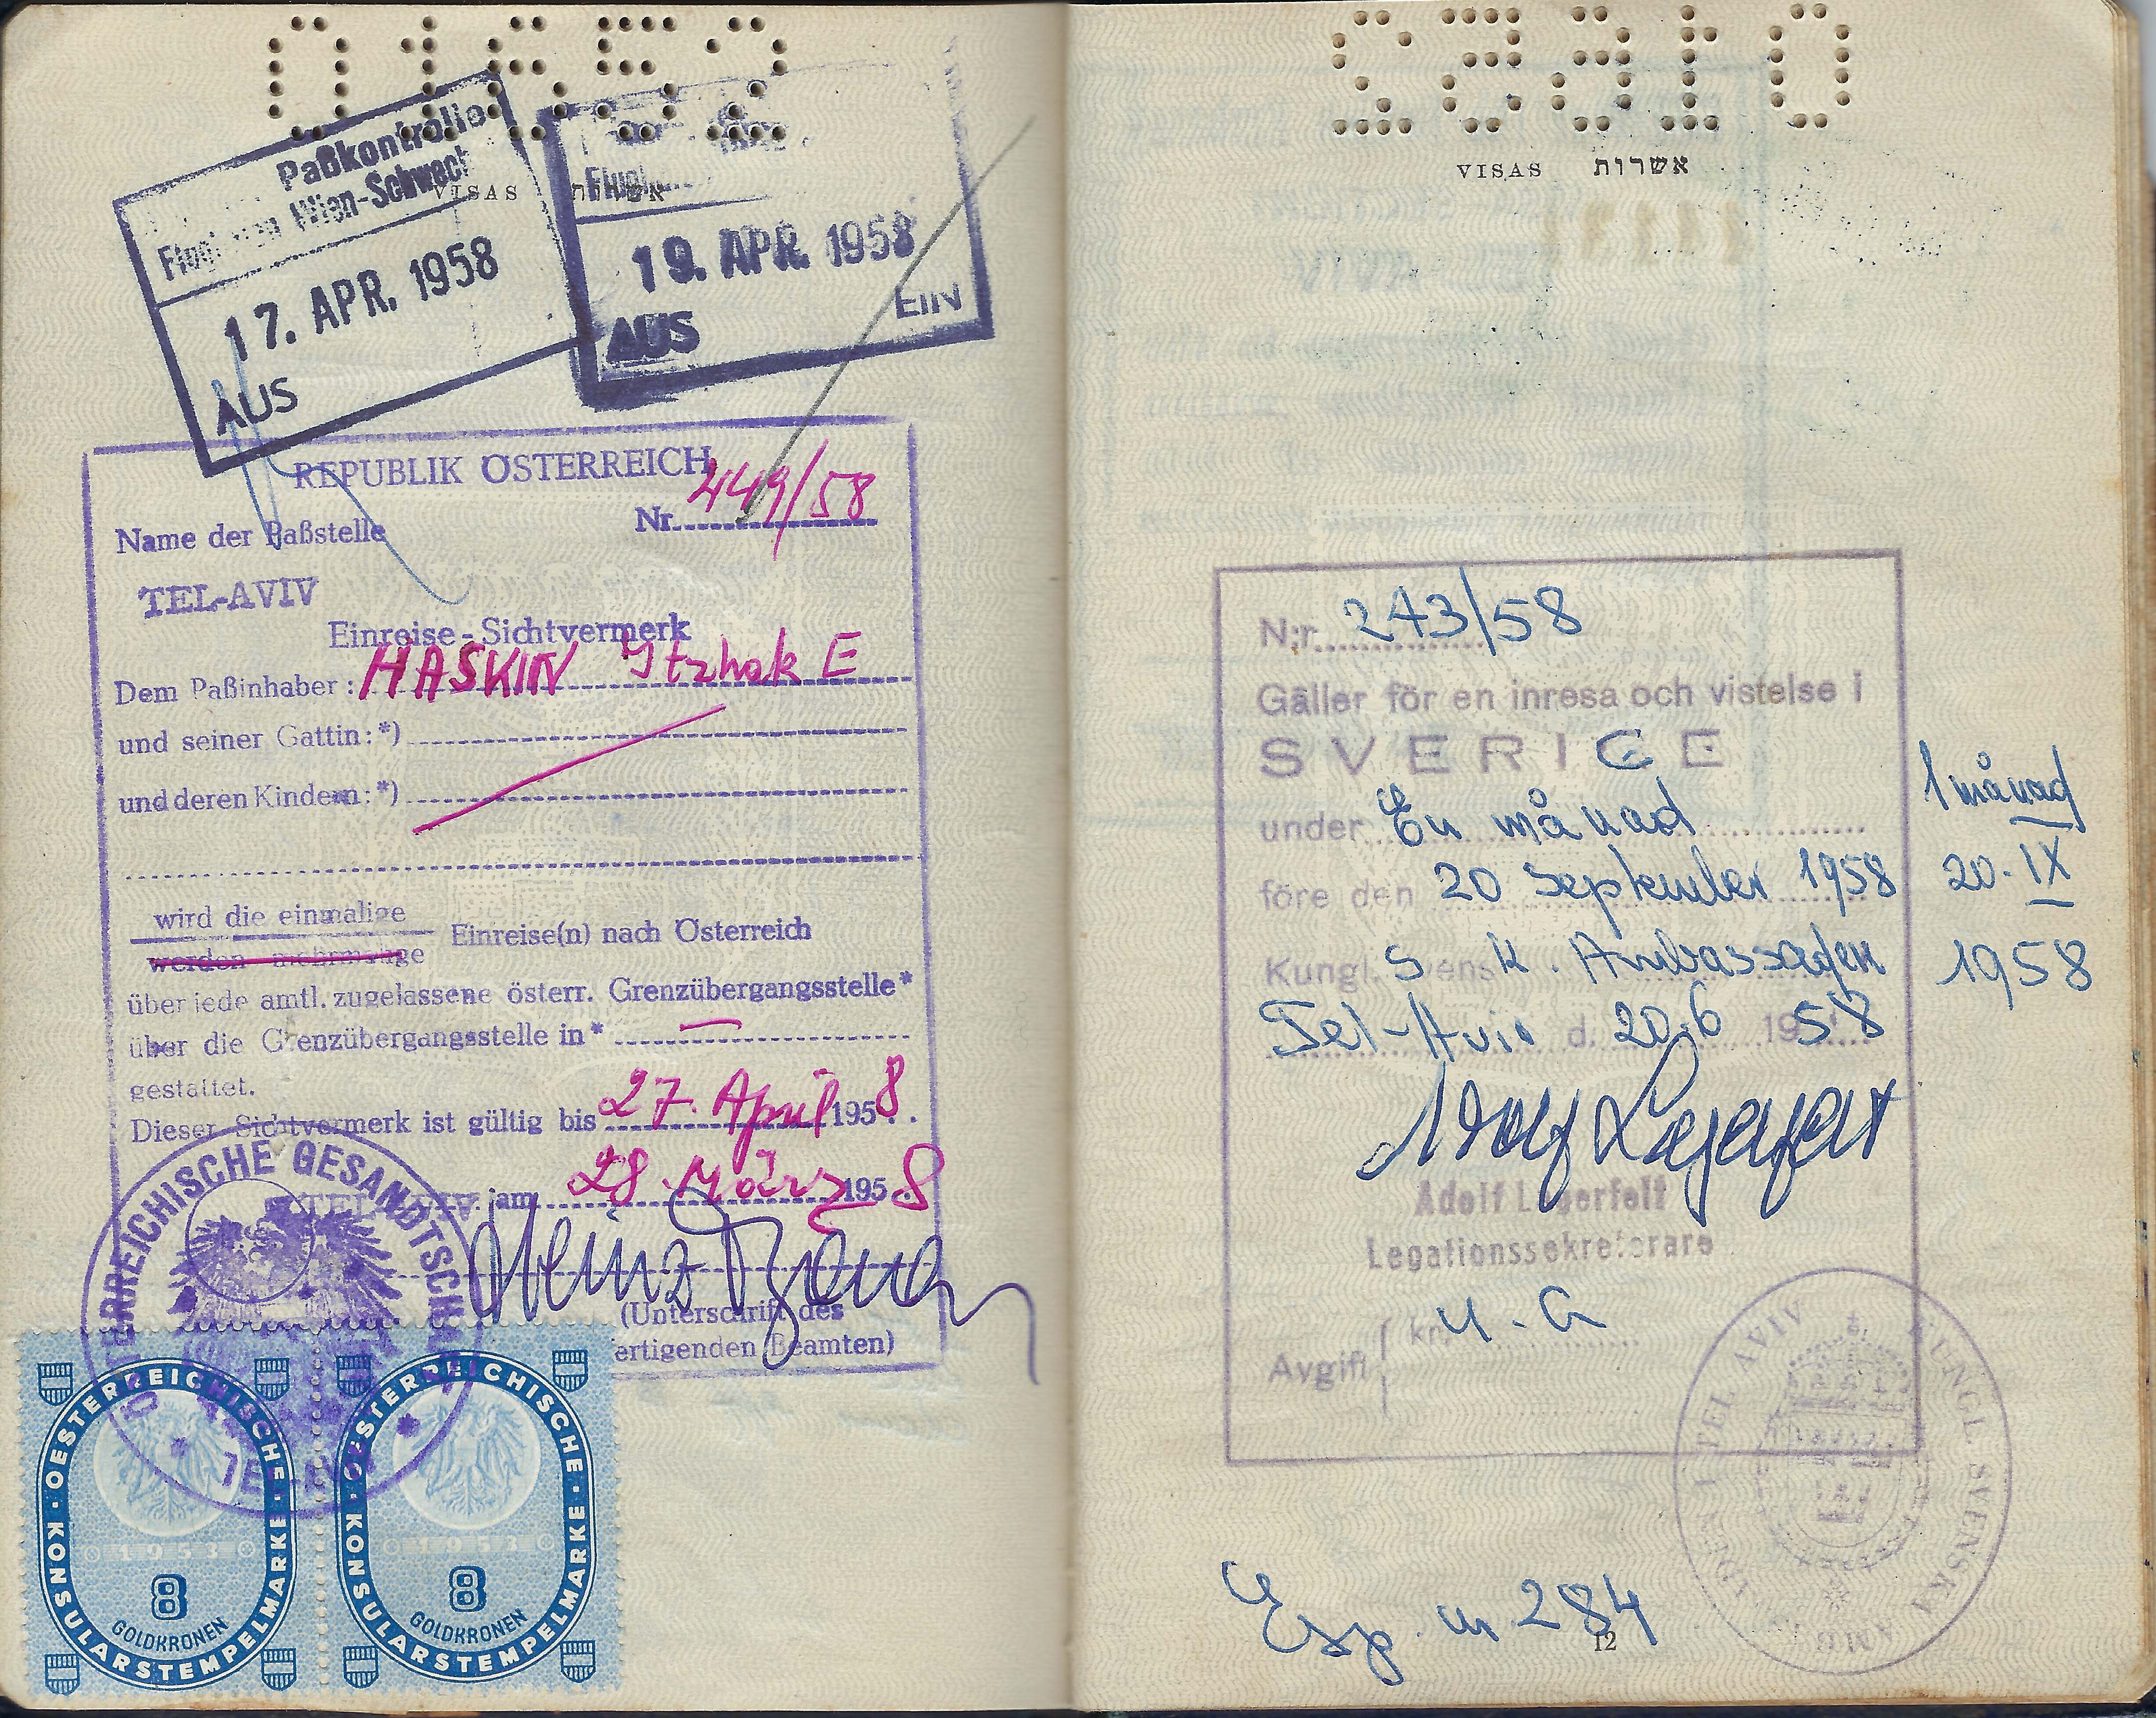 01652
Paßkontrolle
Wien-Schwech
17. APR. 1958
AUS
19. APR. 1958
AUS EIN
VISAS אשרות
REPUBLIK ÖSTERREICH
Nr. 449/58
Name der Paßstelle
TEL-AVIV
Einreise-Sichtvermerk
Dem Paßinhaber: HASKIN Itzhak E
und seiner Gattin:*)
und deren Kindern:*)
wird die einmalige
werden mehrmalige
Einreise(n) nach Österreich
über jede amtl. zugelassene österr. Grenzübergangsstelle*
über die Grenzübergangsstelle in*
gestattet.
Dieser Sichtvermerk ist gültig bis 27. April 1958.
TEL-AVIV am 28. März 1958
(Unterschrift des
ertigenden Beamten)
TERREICHISCHE GESANDTSCHA
TEL-AVIV
OESTERREICHISCHE KONSULARSTEMPELMARKE
1953
8
GOLDKRONEN
OESTERREICHISCHE KONSULARSTEMPELMARKE
1953
8
GOLDKRONEN
01652
VISAS אשרות
N:r 243/58
Gäller för en inresa och vistelse i
SVERIGE
under En månad
före den 20 September 1958
Kungl. Svensk. Ambassaden
Tel-Aviv d. 20.6 1958
Adolf Lagerfelt
Adolf Lagerfelt
Legationssekreterare
Avgift kr.
1 månad
20. IX
1958
KUNGL. SVENSKA AMBASSADEN I TEL AVIV
Exp. nr 284
12